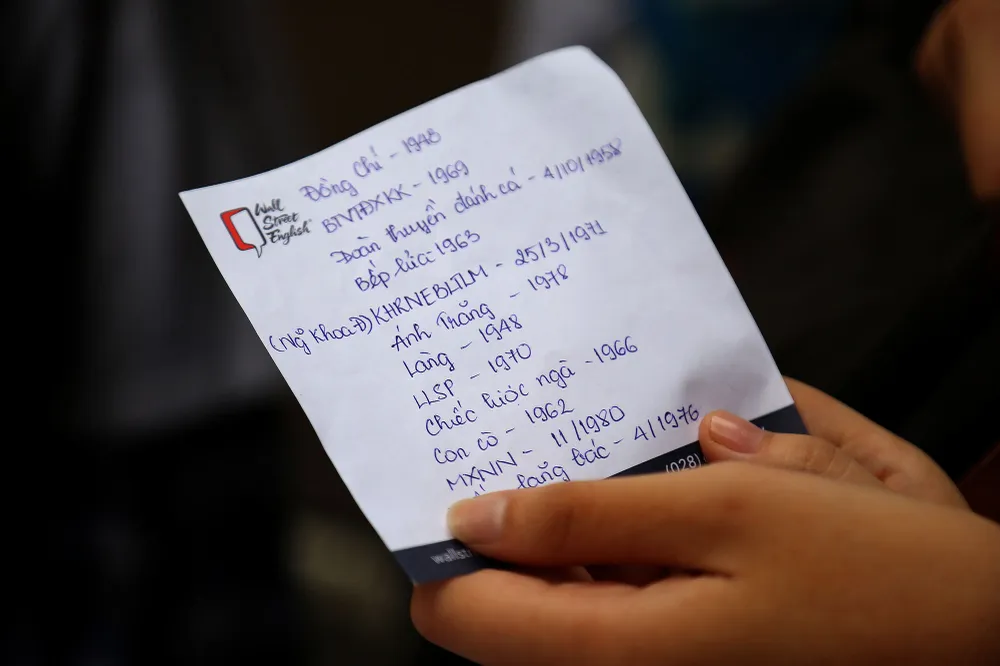 Wall
Street
English
Đồng Chí - 1948
BTVTĐXKK - 1969
Đoàn thuyền đánh cá - 4/10/1958
Bếp lửa 1963
(Ng̉ Khoa Đ) KHRNEBLTLM - 25/3/1971
Ánh Trăng - 1978
Làng - 1948
LLSP - 1970
Chiếc lược ngà - 1966
Con cò - 1962
MXNN - 11/1980
lăng Bác - 4/1976
(028)
wallst